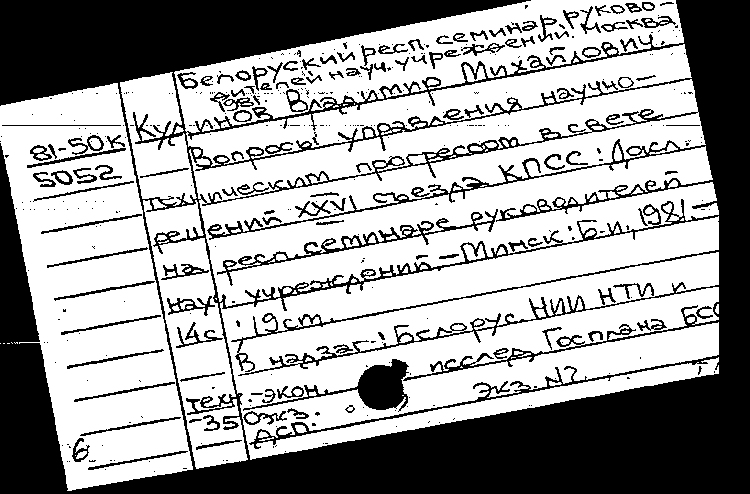 Белоруский респ. семинар руково-
дителей науч. учреждений. Москва
1981.
Кудинов, Владимир Михайлович.
81-50к
5052
Вопросы управления научно-
техническим прогрессом в свете
решений XXVI съезда КПСС : Докл.
на респ. семинаре руководителей
науч. учреждений. - Минск : Б.и., 1981. -
14с ; 19 ст.
В надзаг.: Белорус. НИИ НТИ и
техн.-экон. исслед. Госплана БСС
-350экз.
ДСП.
Экз. N?
6